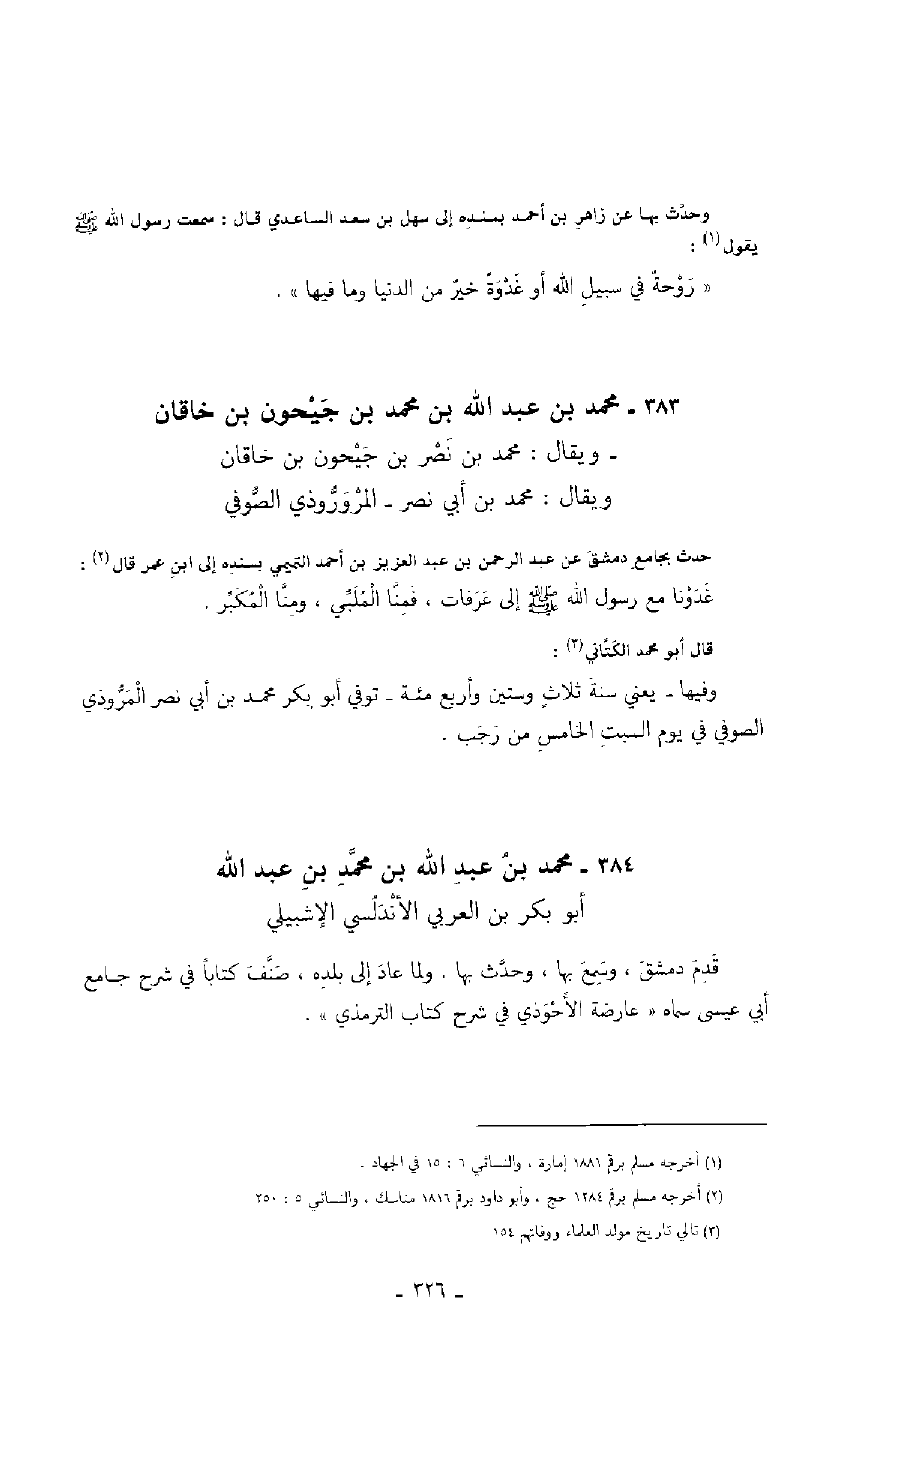 وحدَّث بها عن زاهر بن أحمد بسنده إلى سهل بن سعد الساعدي قال : سمعت رسول الله ﷺ
يقول(١) :
« رَوْحةٌ في سبيلِ الله أو غَدْوَةٌ خيرٌ من الدنيا وما فيها » .
٣٨٣ ـ محمد بن عبد الله بن محمد بن جَيْحون بن خاقان
ـ ويقال : محمد بن نَصْر بن جَيْحون بن خاقان
ويقال : محمد بن أبي نصر ـ المَرْوَرُّوذي الصُّوفي
حدث بجامع دمشقَ عن عبد الرحمن بن عبد العزيز بن أحمد التميمي بسنده إلى ابنِ عمر قال(٢) :
غَدَوْنا مع رسول الله ﷺ إلى عَرَفات ، فَمِنَّا الْمُلَبِّي ، ومِنَّا الْمُكَبِّر .
قال أبو محمد الكَتَّاني(٣) :
وفيها ـ يعني سنةَ ثلاثٍ وستين وأربع مئة ـ توفي أبو بكر محمد بن أبي نصر الْمَرُّوذي
الصوفي في يوم السبتِ الخامسِ من رَجَب .
٣٨٤ ـ محمد بنُ عبدِ الله بن محمَّدِ بنِ عبد الله
أبو بكر بن العربي الأَنْدَلُسي الإشبيلي
قَدِمَ دمشقَ ، وسَمِعَ بها ، وحدَّث بها . ولما عادَ إلى بلدِه ، صَنَّفَ كتاباً في شرح جامع
أبي عيسى سماه « عارضة الأَحْوَذي في شرح كتاب الترمذي » .
(١) أخرجه مسلم برقم ١٨٨١ إمارة ، والنسائي ٦ : ١٥ في الجهاد .
(٢) أخرجه مسلم برقم ١٢٨٤ حج ، وأبو داود برقم ١٨١٦ مناسك ، والنسائي ٥ : ٢٥٠
(٣) تالي تاريخ مولد العلماء ووفاتهم ١٥٤
ـ ٣٢٦ ـ